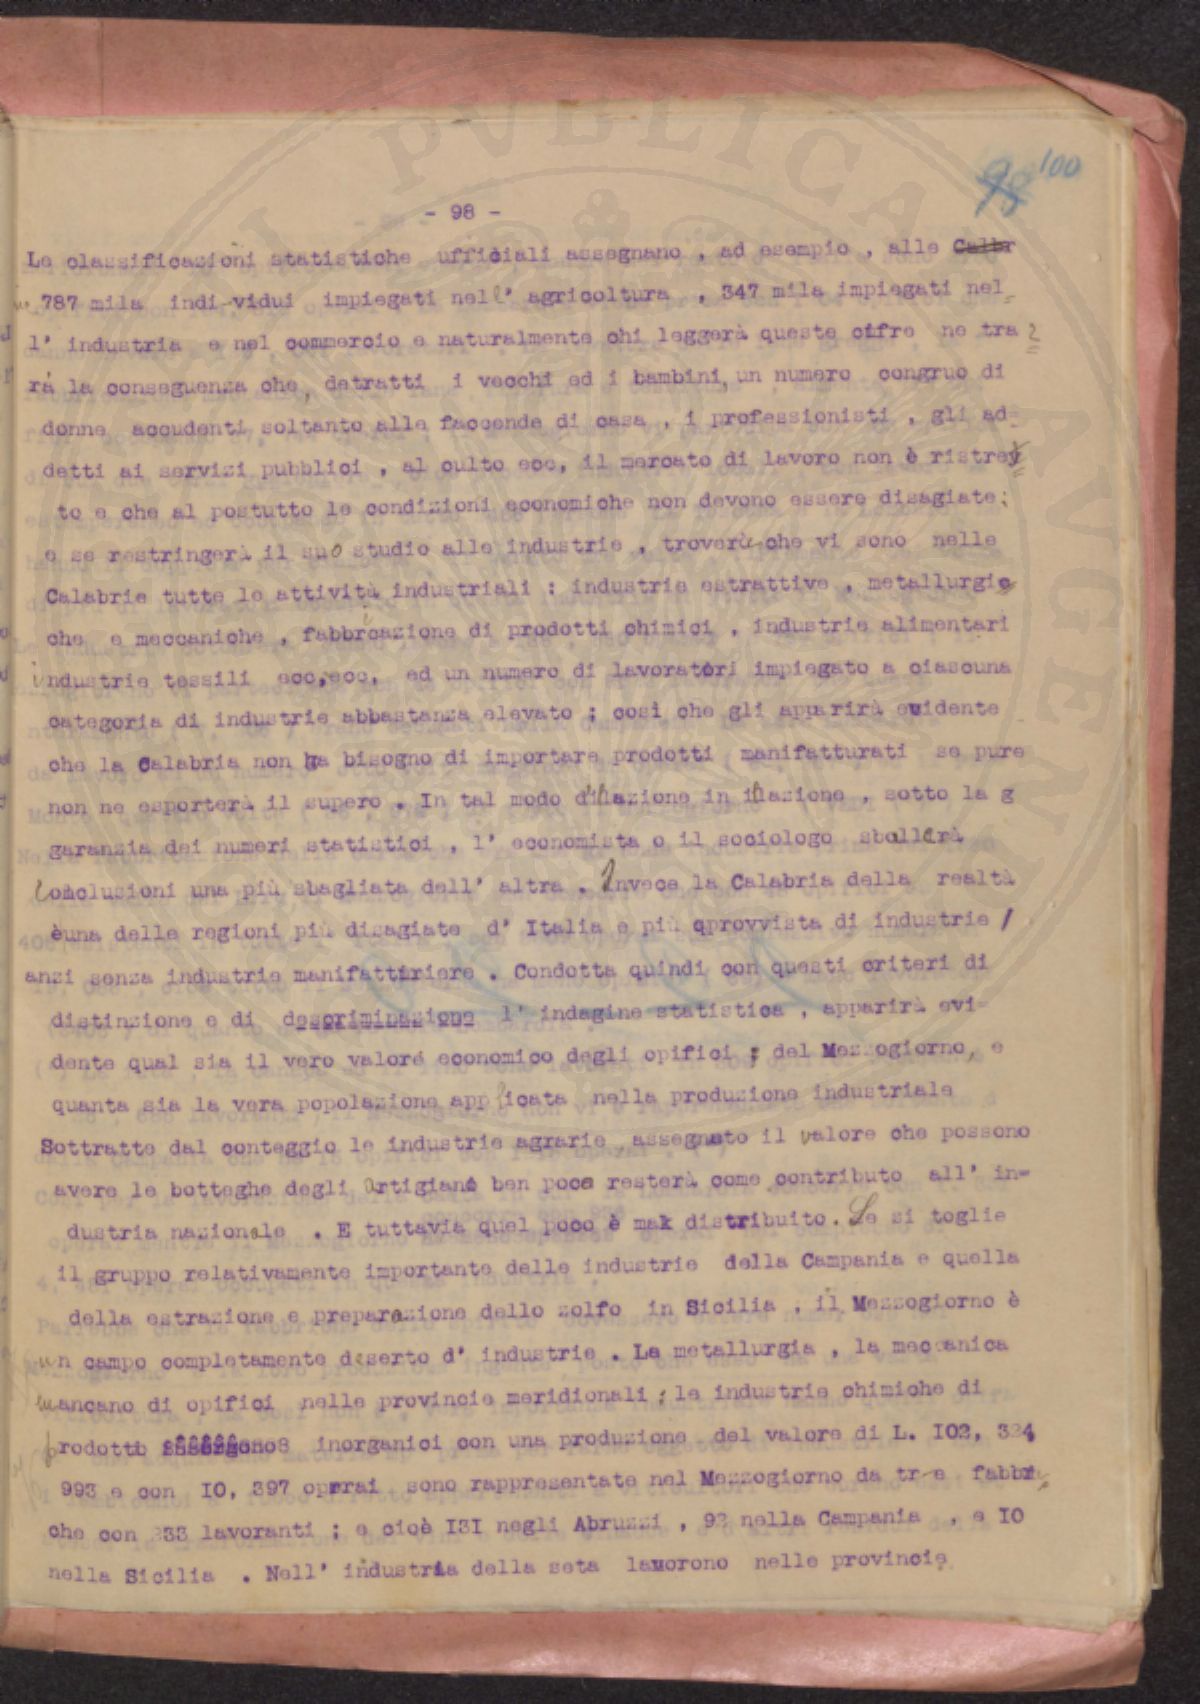 98 100
- 98 -
Le classificazioni statistiche ufficiali assegnano , ad esempio , alle Calbr
787 mila indi-vidui impiegati nell' agricoltura , 347 mila impiegati nel=
l' industria e nel commercio e naturalmente chi leggerà queste cifre ne tra=
rà la conseguenza che, detratti i vecchi ed i bambini, un numero congruo di
donne accudenti soltanto alle faccende di casa , i professionisti , gli ad=
detti ai servizi pubblici , al culto ecc, il mercato di lavoro non è ristret=
to e che al postutto le condizioni economiche non devono essere disagiate;
e se restringerà il suo studio alle industrie , troverà che vi sono nelle
Calabrie tutte le attività industriali : industrie estrattive , metallurgi=
che e meccaniche , fabbricazione di prodotti chimici , industrie alimentari
industrie tessili ecc,ecc, ed un numero di lavoratori impiegato a ciascuna
categoria di industrie abbastanza elevato ; così che gli apparirà evidente
che la Calabria non ha bisogno di importare prodotti manifatturati se pure
non ne esporterà il supero . In tal modo d'illazione in illazione , sotto la g
garanzia dei numeri statistici , l' economista o il sociologo sballerà
conclusioni una più sbagliata dell' altra . Invece la Calabria della realtà
èuna delle regioni più disagiate d' Italia e più qprovvista di industrie /
anzi senza industrie manifatturiere . Condotta quindi con questi criteri di
distinzione e di descriminazione l' indagine statistica , apparirà evi=
dente qual sia il vero valore economico degli opifici ; del Mezzogiorno, e
quanta sia la vera popolazione applicata nella produzione industriale
Sottratte dal conteggio le industrie agrarie, assegnato il valore che possono
avere le botteghe degli artigiani ben poco resterà come contributo all' in=
dustria nazionale . E tuttavia quel poco è mak distribuito. Se si toglie
il gruppo relativamente importante delle industrie della Campania e quella
della estrazione e preparazione dello zolfo in Sicilia , il Mezzogiorno è
un campo completamente deserto d' industrie . La metallurgia , la meccanica
mancano di opifici nelle provincie meridionali ; le industrie chimiche di
prodotti inorganici con una produzione del valore di L. I02, 324,
993 e con I0, 397 operai sono rappresentate nel Mezzogiorno da tr-e fabbri=
che con 233 lavoranti ; e cioè I3I negli Abruzzi , 92 nella Campania , e I0
nella Sicilia . Nell' industria della seta lavorono nelle provincie